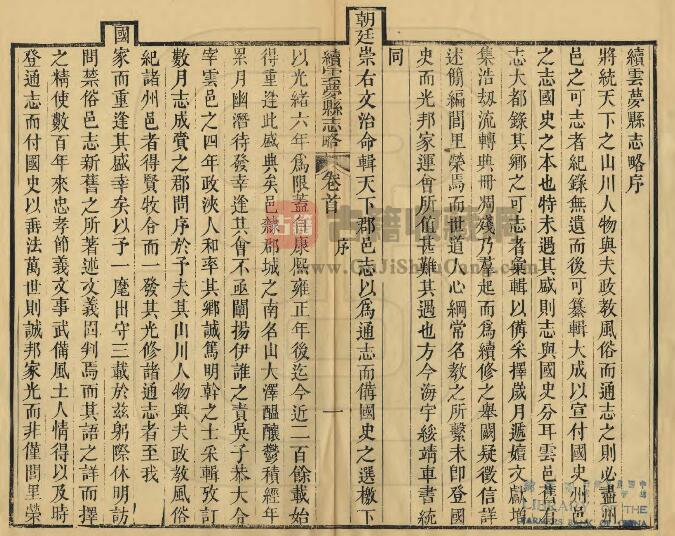 續雲夢縣志略序
將統天下之山川人物與夫政教風俗而通志之則必盡州
邑之可志者紀錄無遺而後可纂輯大成以宣付國史州邑
之志國史之本也特未遇其盛則志與國史分耳雲邑舊有
志大都錄其鄉之可志者彙輯以備采擇歲月遞嬗文獻增
集浩刼流轉典冊凋殘乃羣起而爲續修之舉闕疑徵信詳
述簡編閭里榮焉而世道人心綱常名教之所繫未卽登國
史而光邦家運會所值甚難其遇也方今海宇綏靖車書統
同
朝廷崇右文治命輯天下郡邑志以爲通志而備國史之選檄下
續雲夢縣志略 卷首 序 一
以光緒六年爲限蓋自康熙雍正年後迄今近二百餘載始
得重逢此盛典矣邑隸郡城之南名山大澤醞釀鬱積經年
累月幽潛待發幸逢其會不亟闡揚伊誰之責吳子恭大令
宰雲邑之四年政浹人和率其鄉誠篤明幹之士采輯攷訂
數月志成賫之郡問序於予夫其山川人物與夫政教風俗
紀諸州邑者得賢牧合而一發其光修諸通志者至我
國
家而重逢其盛幸矣以予一麾出守三載於兹躬際休明訪
問禁俗邑志新舊之所著述文義因判焉而其語之詳而擇
之精使數百年來忠孝節義文事武備風土人情得以及時
登通志而付國史以垂法萬世則誠邦家光而非僅閭里榮
古籍
古籍收藏网
www.GuJiShouCang.com
LIBRARY OF THE
FARMERS BANK OF CHINA